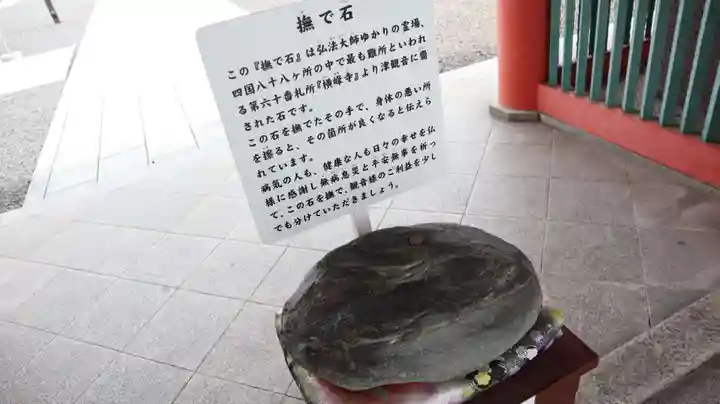 撫で石
この『撫で石』は弘法大師ゆかりの霊場、
四国八十八ヶ所の中で最も難所といわれ
る第六十番札所『横峰寺』より津観音に奮
された石です。
この石を撫でたその手で、身体の悪い所
を擦ると、その箇所が良くなると伝えら
れています。
病気の人も、健康な人も日々の幸せを仏
様に感謝し無病息災と平安無事を祈っ
て、この石を撫で、観音様のご利益を少し
でも分けていただきましょう。